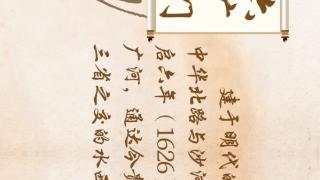 门
建于明代
中华北路与沙
启六年（1626
广河，通达今
三省之交的水西